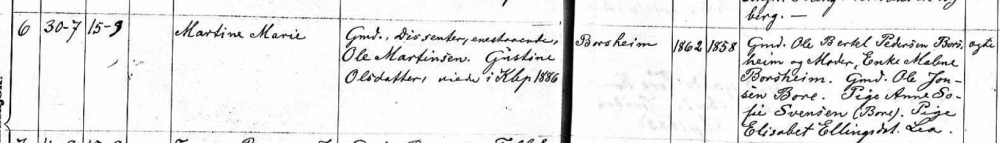 berg. —
6 30-7 15-9 Martine Marie
Gmd., dissenter, enestaaende,
Ole Martinsen. Gustine
Olsdatter, viede i Klep 1886
Borsheim 1862 1858
Gmd. Ole Bertel Pedersen Bors-
heim og Moder, Enke Malene
Borsheim. Gmd. Ole Jon-
sen Bore. Pige Anne So-
fie Svensen (Bore). Pige
Elisabet Ellingsdt. Lea.
ægte